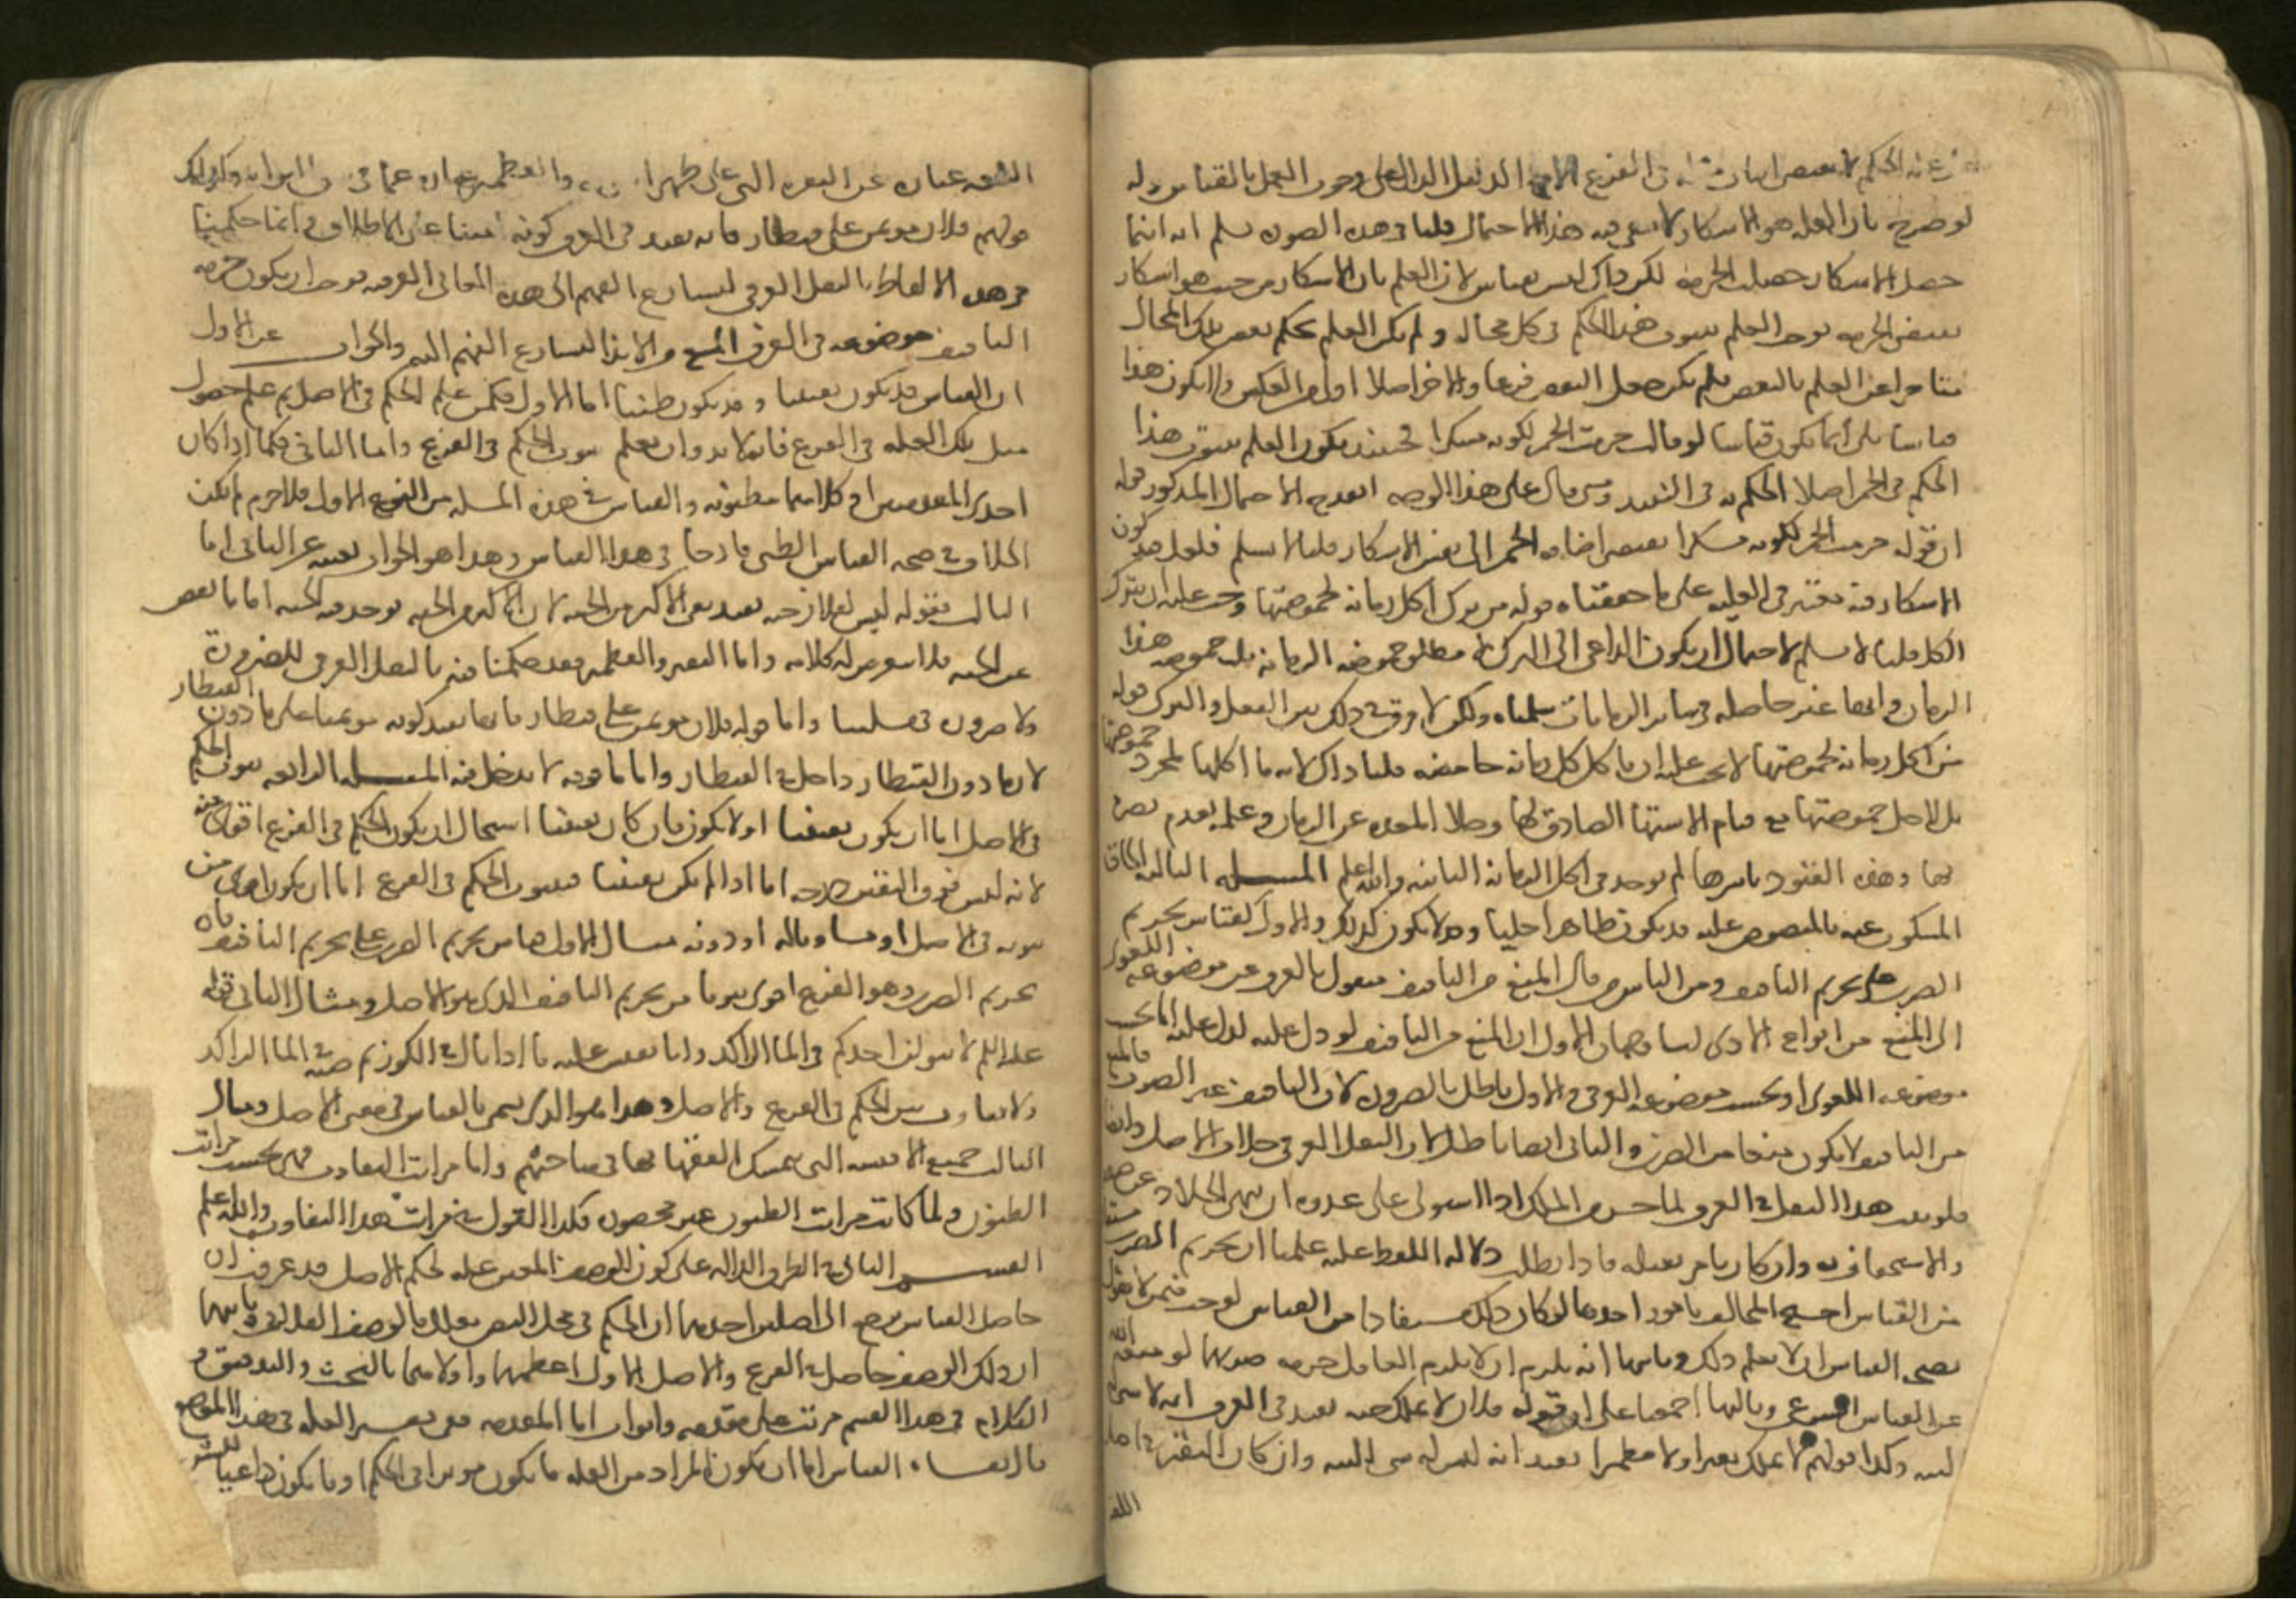 عن علة الحكم لا يقتضي اثبات مثله في الفرع الا مع الدليل الدال على وجوب العمل بالقياس قوله
لو صرح بان العلة هو الاسكار لا يبقى فيه هذا الاحتمال قلنا في هذه الصورة نسلم انه اينما
حصل الاسكار حصلت الحرمة لكن ذاك ليس بقياس لان العلم بان الاسكار من حيث هو اسكار
يقتضي الحرمة يوجب العلم بثبوت هذا الحكم في كل محاله ولم يكن العلم بحكم بعض تلك المحال
متاخرا عن العلم بالبعض فلم يكن جعل البعض فرعا والاخر اصلا اولى من العكس فلا يكون هذا
قياسا بل انما يكون قياسا لو قال حرمت الخمر لكونه مسكرا فحينئذ يكون العلم بثبوت هذا
الحكم في الخمر اصلا للحكم به في النبيذ ومتى قال على هذا الوجه انقدح الاحتمال المذكور قوله
ان قوله حرمت الخمر لكونه مسكرا يقتضي اضافة الحرمة الى نفس الاسكار قلنا لا نسلم فلعل قيد كون
الاسكار فيه معتبر في العلية على ما حققناه قوله من ترك اكل رمانة لحموضتها وجب عليه ان يترك
الكل قلنا لا نسلم لاحتمال ان يكون الداعي الى الترك لا مطلق حموضة الرمانة بل حموضة هذا
الرمان وانها غير حاصلة في سائر الرمانات سلمناه ولكن لا فرق في ذلك بين الفعل والترك قوله
من اكل رمانة لحموضتها لا يجب عليه ان ياكل كل رمانة حامضة قلنا ذاك لانه ما اكلها لمجرد حموضتها
بل لاجل حموضتها مع قيام الاشتهاء الصادق لها وخلو المعدة عن الرمان وعلمه بعدم تضرره
بها وهذه القيود باسرها لم توجد في اكل الرمانة الثانية والله اعلم المسلة الثالثة الحاق
المسكوت عنه بالمنصوص عليه قد يكون ظاهرا جليا وقد لا يكون كذلك والاول كقياس تحريم
الضرب على تحريم التافيف ومن الناس من قال المنع من التافيف منقول بالعرف عن موضوعه اللغوي
الى المنع من انواع الاذى لنا وجهان الاول ان المنع من التافيف لو دل عليه لدل عليه اما بحسب
موضوعه اللغوي او بحسب موضوعه العرفي والاول باطل بالضرورة لان التافيف غير الضرب فالمنع
من التافيف لا يكون منعا من الضرب والثاني ايضا باطل لان النقل العرفي خلاف الاصل وايضا
فلو ثبت هذا النقل في العرف لما حسن من الملك اذا استولى على عدوه ان ينهى الجلاد عن صفعه
والاستخفاف به وان كان يامر بقتله فاذا بطلت دلالة اللفظ عليه علمنا ان تحريم الضرب مستفاد
من القياس احتج المخالف بامور احدها لو كان ذلك مستفادا من القياس لوجب فيمن لا يقول
بصحة القياس ان لا يعلم ذلك وثانيها انه يلزم ان لا يعلم العاقل حرمة ضربهما لو منعه الله
عن القياس الشرعي وثالثها اجمعنا على ان قوله فلان لا يملك حبة يفيد في العرف انه لا شيء
له وكذا قولهم لا يملك نقيرا ولا قطميرا يفيد انه ليس له شيء البتة وان كان النقير في اصل
اللغة
اللغة عبارة عن النقرة التي على ظهر النواة والقطمير عبارة عما في شق النواة وكذلك
قولهم فلان مؤتمن على قنطار فانه يفيد في العرف كونه امينا على الاطلاق فانما حكمنا
في هذه الالفاظ بالنقل العرفي لتسارع الفهم الى هذه المعاني العرفية فوجب ان يكون حرمة
التافيف موضوعة في العرف للمنع من الايذاء لتسارع الفهم اليه والجواب عن الاول
ان القياس قد يكون يقينيا وقد يكون ظنيا اما الاول فكمن علم الحكم في الاصل ثم علم حصول
مثل تلك العلة في الفرع فانه لا بد وان يعلم ثبوت الحكم في الفرع واما الثاني فكما اذا كان
احدى المقدمتين او كلاهما مظنونة والقياس في هذه المسلة من النوع الاول فلا جرم لم يكن
الخلاف في صحة القياس الظني قادحا في هذا القياس وهذا هو الجواب بعينه عن الثاني اما
الثالث فقوله ليس لفلان حبة يفيد نفي الاكثر من الحبة لان الاكثر من الحبة يوجد فيه الحبة اما ما نقص
عن الحبة فلا تعرض له كلامه واما النقير والقطمير فقد حكمنا فيه بالنقل العرفي للضرورة
ولا ضرورة في مسلتنا واما قوله فلان مؤتمن على قنطار فانما يفيد كونه مؤتمنا على ما دون القنطار
لان ما دون القنطار داخل في القنطار واما ما فوقه لا يدخل فيه المسلة الرابعة ثبوت الحكم
في الاصل اما ان يكون يقينيا او لا يكون فان كان يقينيا استحال ان يكون الحكم في الفرع اقوى منه
لانه ليس فوق اليقين درجة اما اذا لم يكن يقينيا فثبوت الحكم في الفرع اما ان يكون اقوى من
ثبوته في الاصل او مساويا له او دونه مثال الاول قياس تحريم الضرب على تحريم التافيف فان
تحريم الضرب وهو الفرع اقوى ثبوتا من تحريم التافيف الذي هو الاصل ومثال الثاني قوله
عليه السلم لا يبولن احدكم في الماء الراكد وانا نقيس عليه ما اذا بال في الكوز ثم صبه في الماء الراكد
ولا تفاوت بين الحكم في الفرع والاصل وهذا هو الذي يسمى بالقياس في معنى الاصل ومثال
الثالث جميع الاقيسة التي يتمسك الفقهاء بها في مباحثهم واما مراتب التفاوت فهي بحسب مراتب
الظنون ولما كانت مراتب الظنون غير محصورة فكذا القول في مراتب هذا التفاوت والله اعلم
القسم الثاني في الطرق الدالة على كون الوصف المعين علة لحكم الاصل قد عرفت ان
حاصل القياس يرجع الى اصلين احدهما ان الحكم في محل النص معلل بالوصف الفلاني وثانيهما
ان ذلك الوصف حاصل في الفرع والاصل الاول اعظمهما واولاهما بالبحث والتدقيق و
الكلام في هذا القسم مرتب على مقدمة وابواب اما المقدمة ففي تفسير العلة في هذا الموضع
قال نفاة القياس اما ان يكون المراد من العلة ما يكون موثرا في الحكم او ما يكون داعيا للشرع